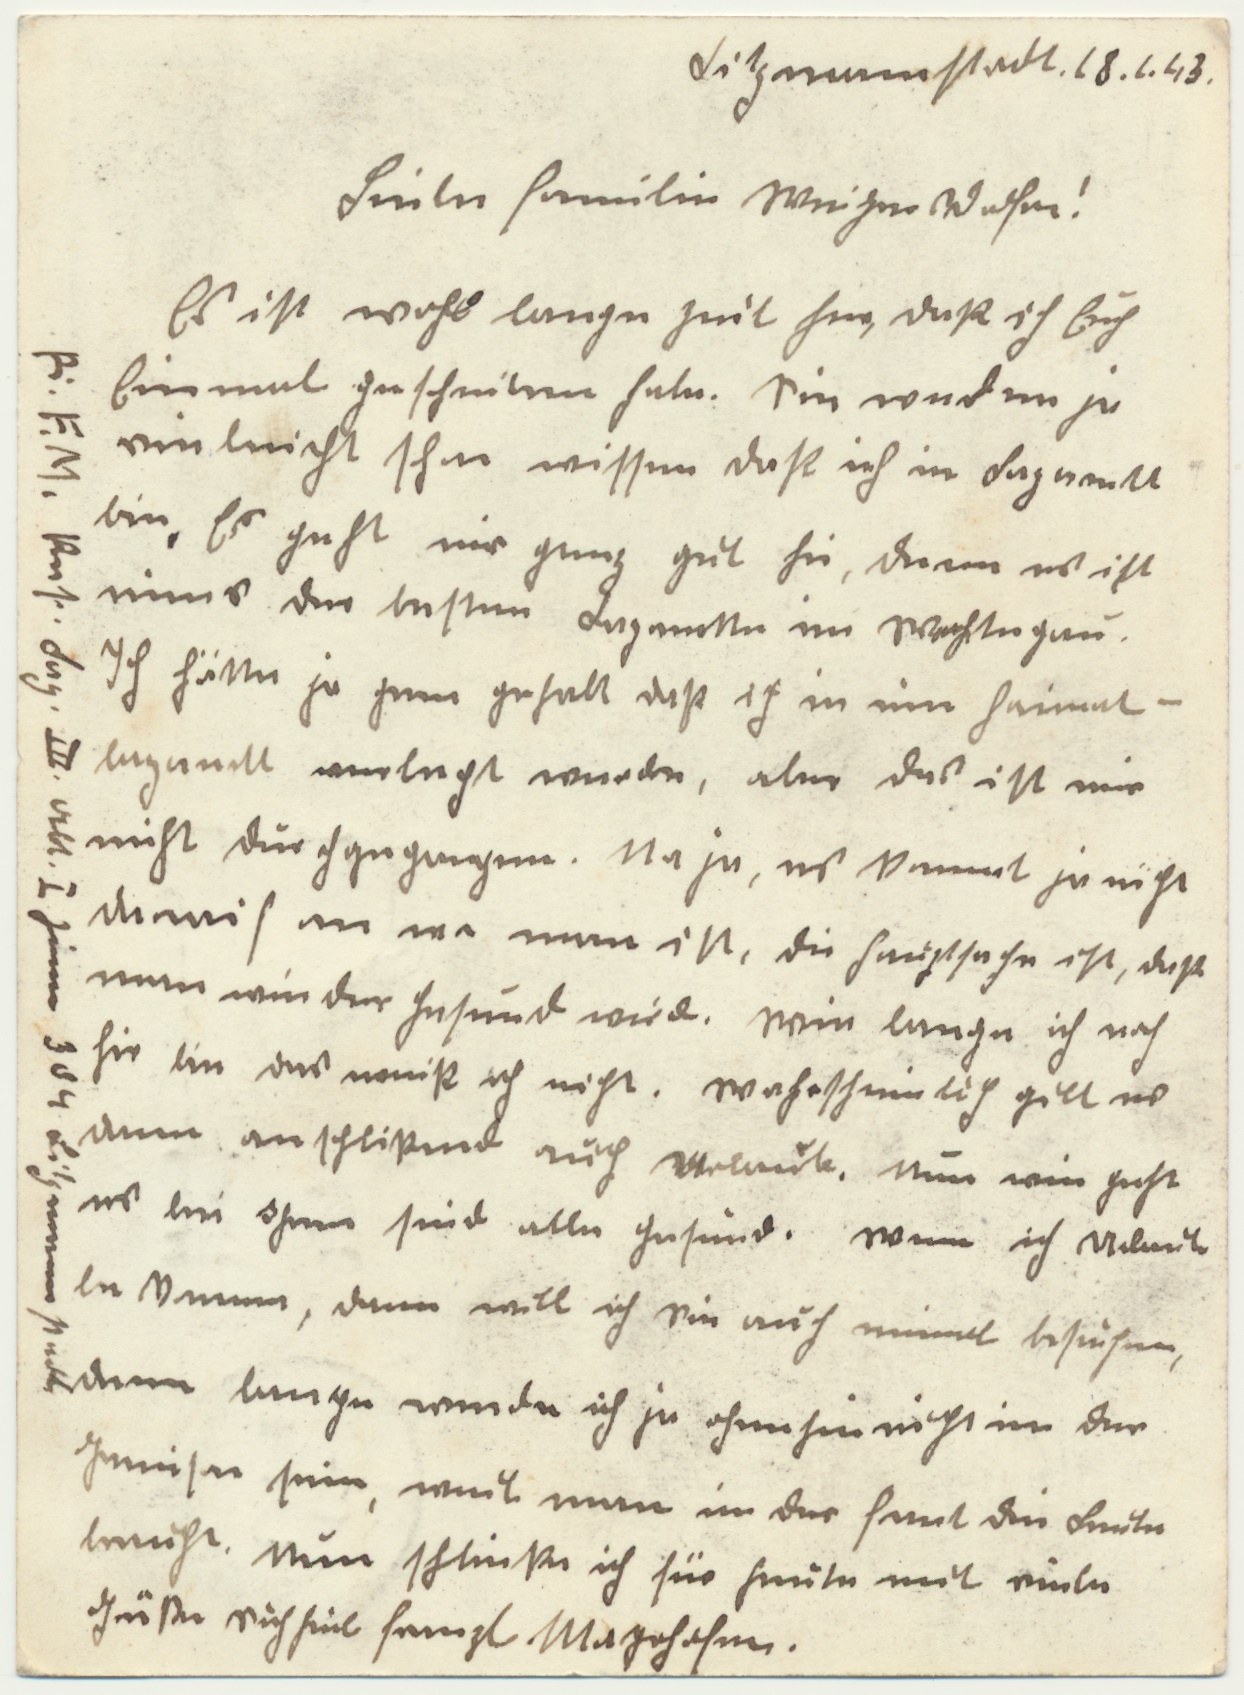 Litzmannstadt. 18.1.43.
Liebe Familie
Es ist wohl lange Zeit her, daß ich Euch
Einmal geschrieben habe. Sie werden ja
vieleicht schon wissen daß ich in Lazarett
bin. Es geht mir ganz gut hir, denn es ist
eines der besten Lazarette im Wartegau.
Ich hätte ja gern gehabt daß ich in ein Heimat-
lazarett verlegt wurde, aber das ist mir
nicht durchgegangen. Na ja, es kommt ja nicht
darauf an wo man ist, die Hauptsache ist, daß
man wieder Gesund wird. Wie lange ich noch
hir bin das weiß ich nicht. Wahrscheinlich gibt es
dann anschlißend auch Urlaub. Nun wie geht
es bei Ihnen sind alle Gesund. Wenn ich Urlaub
bekomme, dann will ich Sie auch einmal besuchen,
denn lange werde ich ja ohnehin nicht in der
Garnison sein, weil man in der Front die Leute
braucht. Nun schließe ich für heute mit viele
Grüße Franzl
R. K.M. Res. Laz. III. Abt. I Zimmer 304 Litzmannstadt